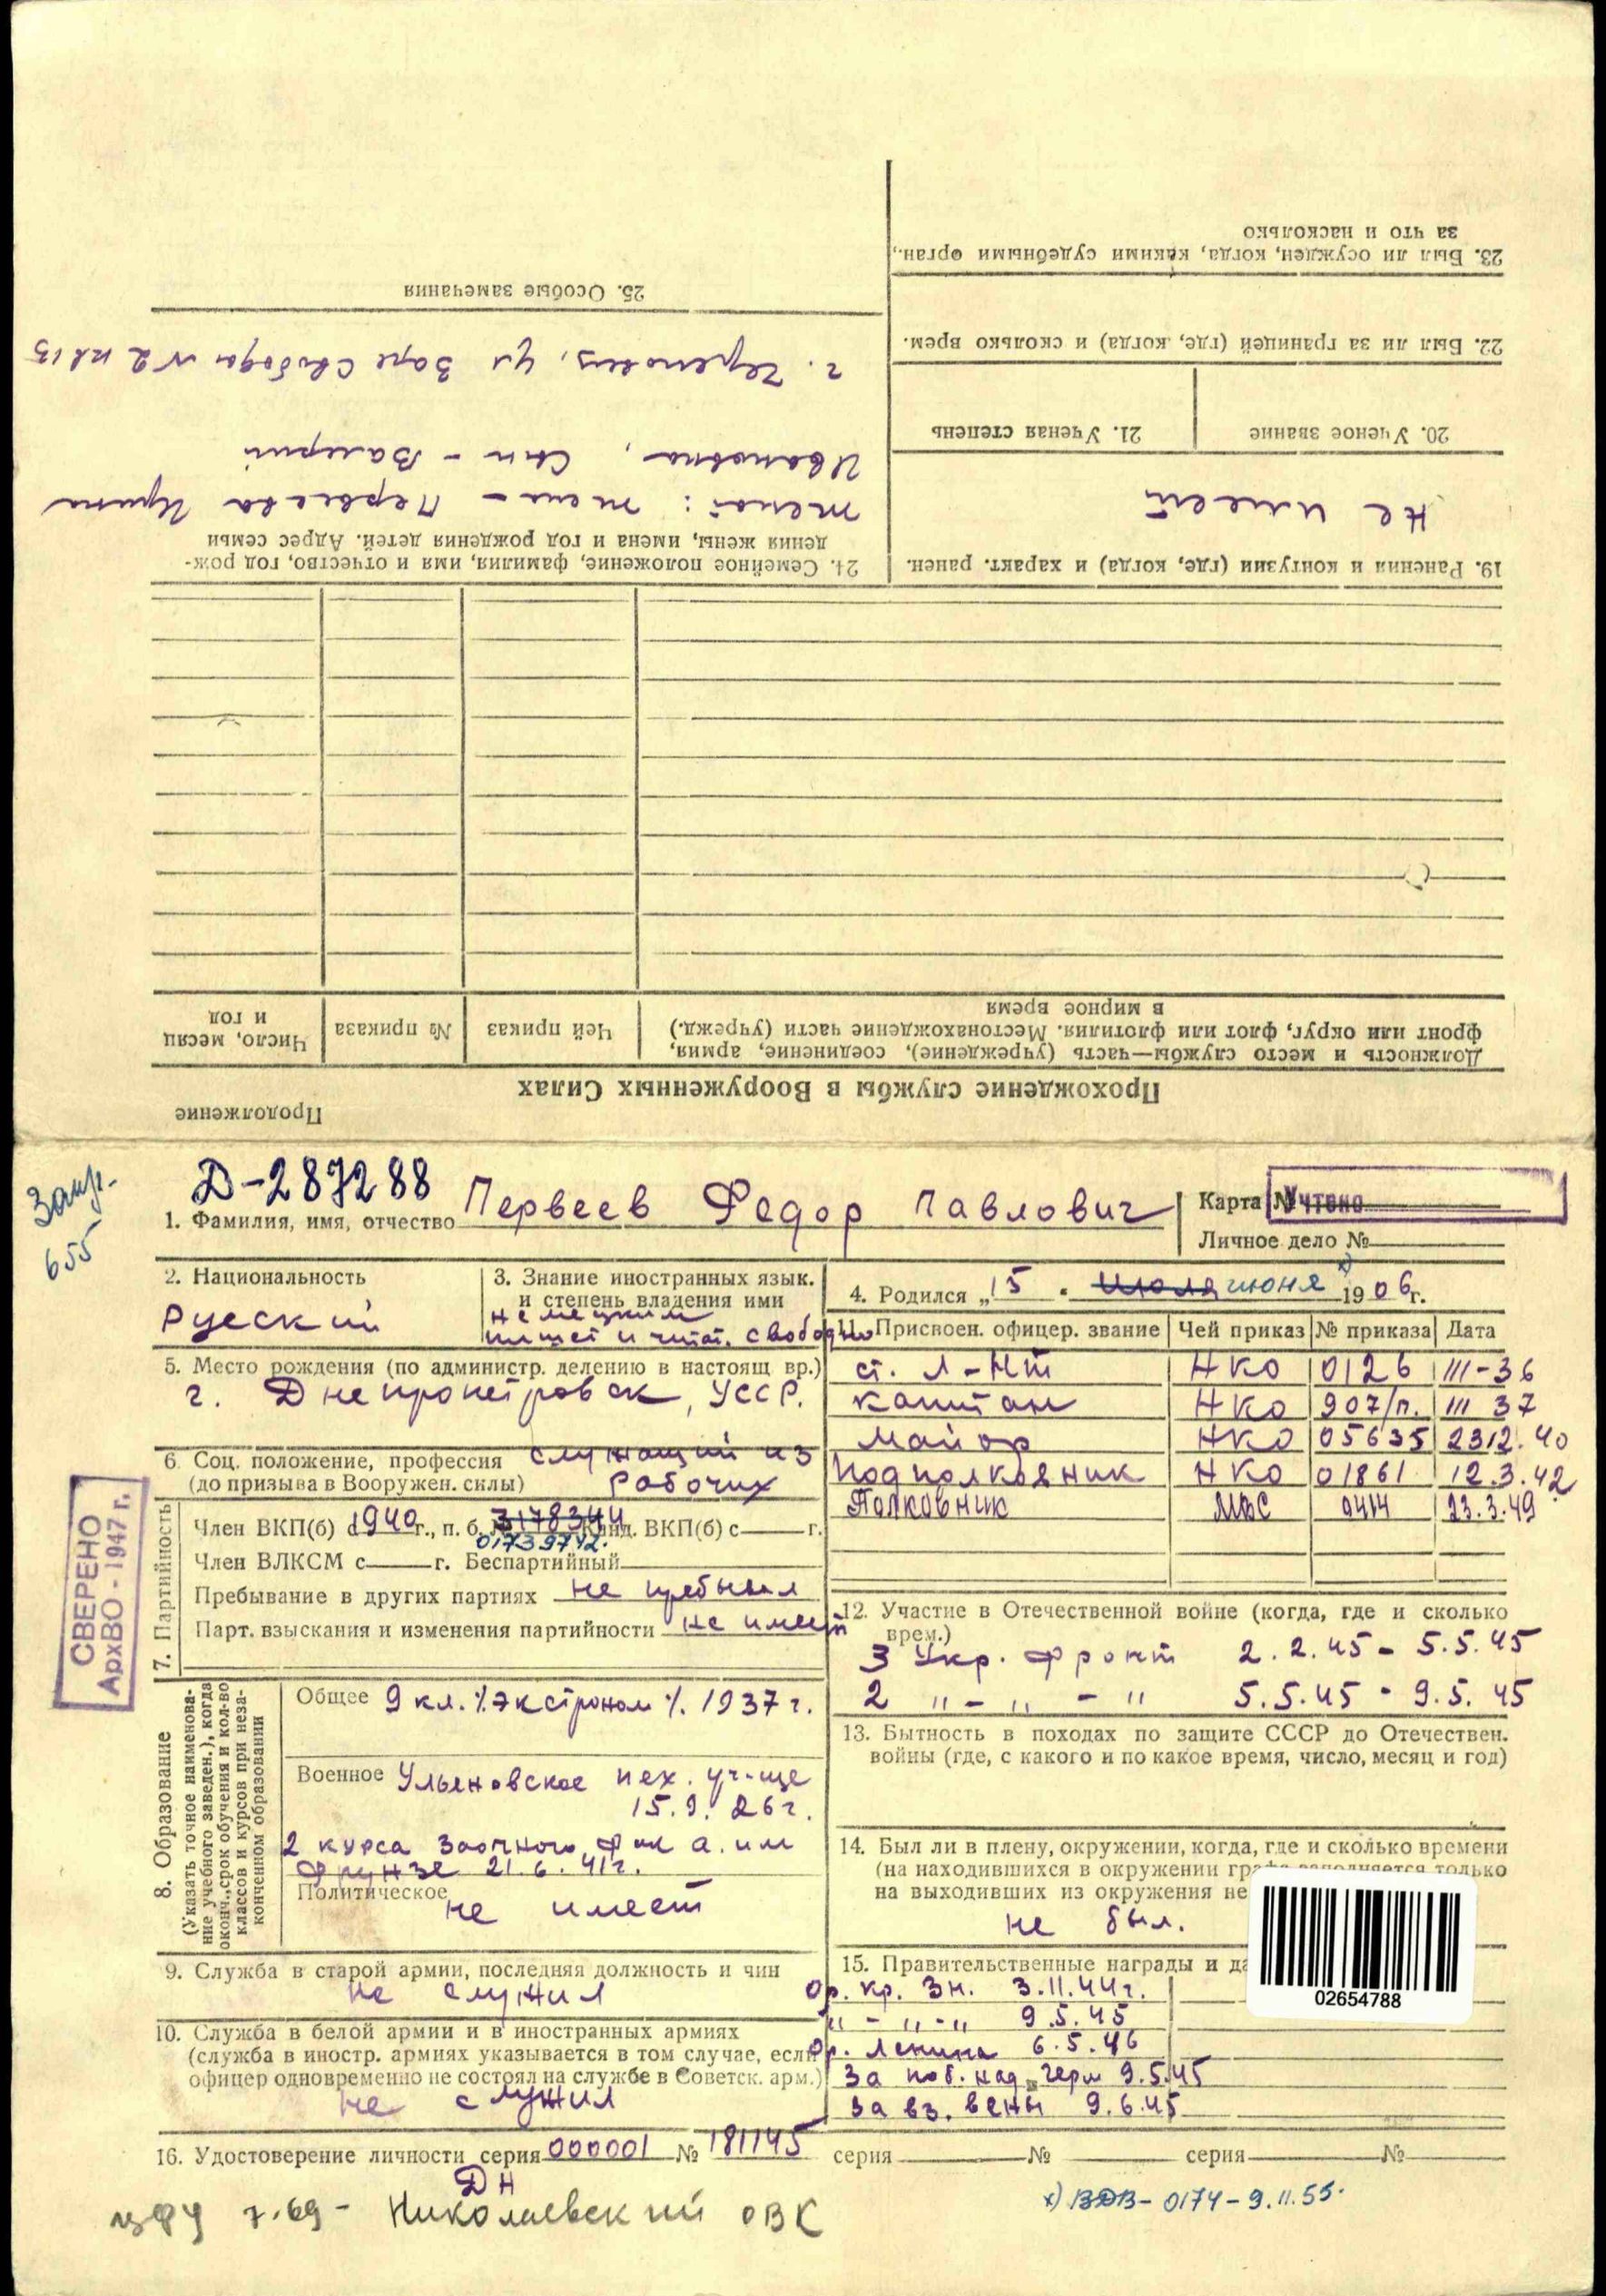 23. Был ли осужден, когда, какими судебными орган.,
за что и насколько
22. Был ли за границей (где, когда) и сколько врем.
20. Ученое звание
21. Ученая степень
19. Ранения и контузии (где, когда) и характ. ранен.
Не имеет
24. Семейное положение, фамилия, имя и отчество, год рож-
дения жены, имена и год рождения детей. Адрес семьи
женат: жена - Первеева Ирина
Ивановна, сын - Валерий
г. Череповец, ул Зоре Свободы №2 кв 13
25. Особые замечания
Продолжение
Прохождение службы в Вооруженных Силах
Должность и место службы—часть (учреждение), соединение, армия,
фронт или округ, флот или флотилия. Местонахождение части (учрежд.)
в мирное время
Чей приказ
№ приказа
Число, месяц
и год
Запр.
655
Д-287288
1. Фамилия, имя, отчество Первеев Федор Павлович
Карта №
Учтено
Личное дело №
2. Национальность
Русский
3. Знание иностранных язык.
и степень владения ими
немецким
пишет и читат. свободно
4. Родился „15 " июля июня х) 1906г.
5. Место рождения (по администр. делению в настоящ вр.)
г. Днепропетровск, УССР.
6. Соц. положение, профессия служащий из
(до призыва в Вооружен. силы) рабочих
СВЕРЕНО
АрхВО - 1947 г.
7. Партийность
Член ВКП(б) с 1940г., п. б. 3178344 Канд. ВКП(б) с г.
01739742.
Член ВЛКСМ с г. Беспартийный
Пребывание в других партиях не пребывал
Парт. взыскания и изменения партийности не имеет
8. Образование
(Указать точное наименова-
ние учебного заведен.), когда
оконч., срок обучения и кол-во
классов и курсов при неза-
конченном образовании
Общее 9 кл. /.экстроном/. 1937 г.
Военное Ульяновское пех. уч-ще
15.9. 26г.
2 курса заочного фак а. им
Фрунзе 21.6.41г.
Политическое
не имеет
9. Служба в старой армии, последняя должность и чин
не служил
10. Служба в белой армии и в иностранных армиях
(служба в иностр. армиях указывается в том случае, если
офицер одновременно не состоял на службе в Советск. арм.)
не служил
11. Присвоен. офицер. звание Чей приказ № приказа Дата
ст. л-нт НКО 0126 III-36
капитан НКО 907/п. III 37
майор НКО 05635 2312.40
подполковник НКО 01861 12.3.42
Полковник МВС 0414 23.3.49
12. Участие в Отечественной войне (когда, где и сколько
врем.)
3 Укр. фронт 2.2.45 - 5.5.45
2 " - " - " 5.5.45 - 9.5.45
13. Бытность в походах по защите СССР до Отечествен.
войны (где, с какого и по какое время, число, месяц и год)
14. Был ли в плену, окружении, когда, где и сколько времени
(на находившихся в окружении графа заполняется только
на выходивших из окружения не
не был.
02654788
15. Правительственные награды и да
Ор. Кр. Зн. 3.11.44г.
" - " - " 9.5.45
Ор. Ленина 6.5.46
За поб. над герм 9.5.45
За вз. вены 9.6.45
16. Удостоверение личности серия 000001 № 181145 серия № серия №
ДН
7.69 - Николаевский ОВК
х) ВДВ - 0174 - 9.11.55.